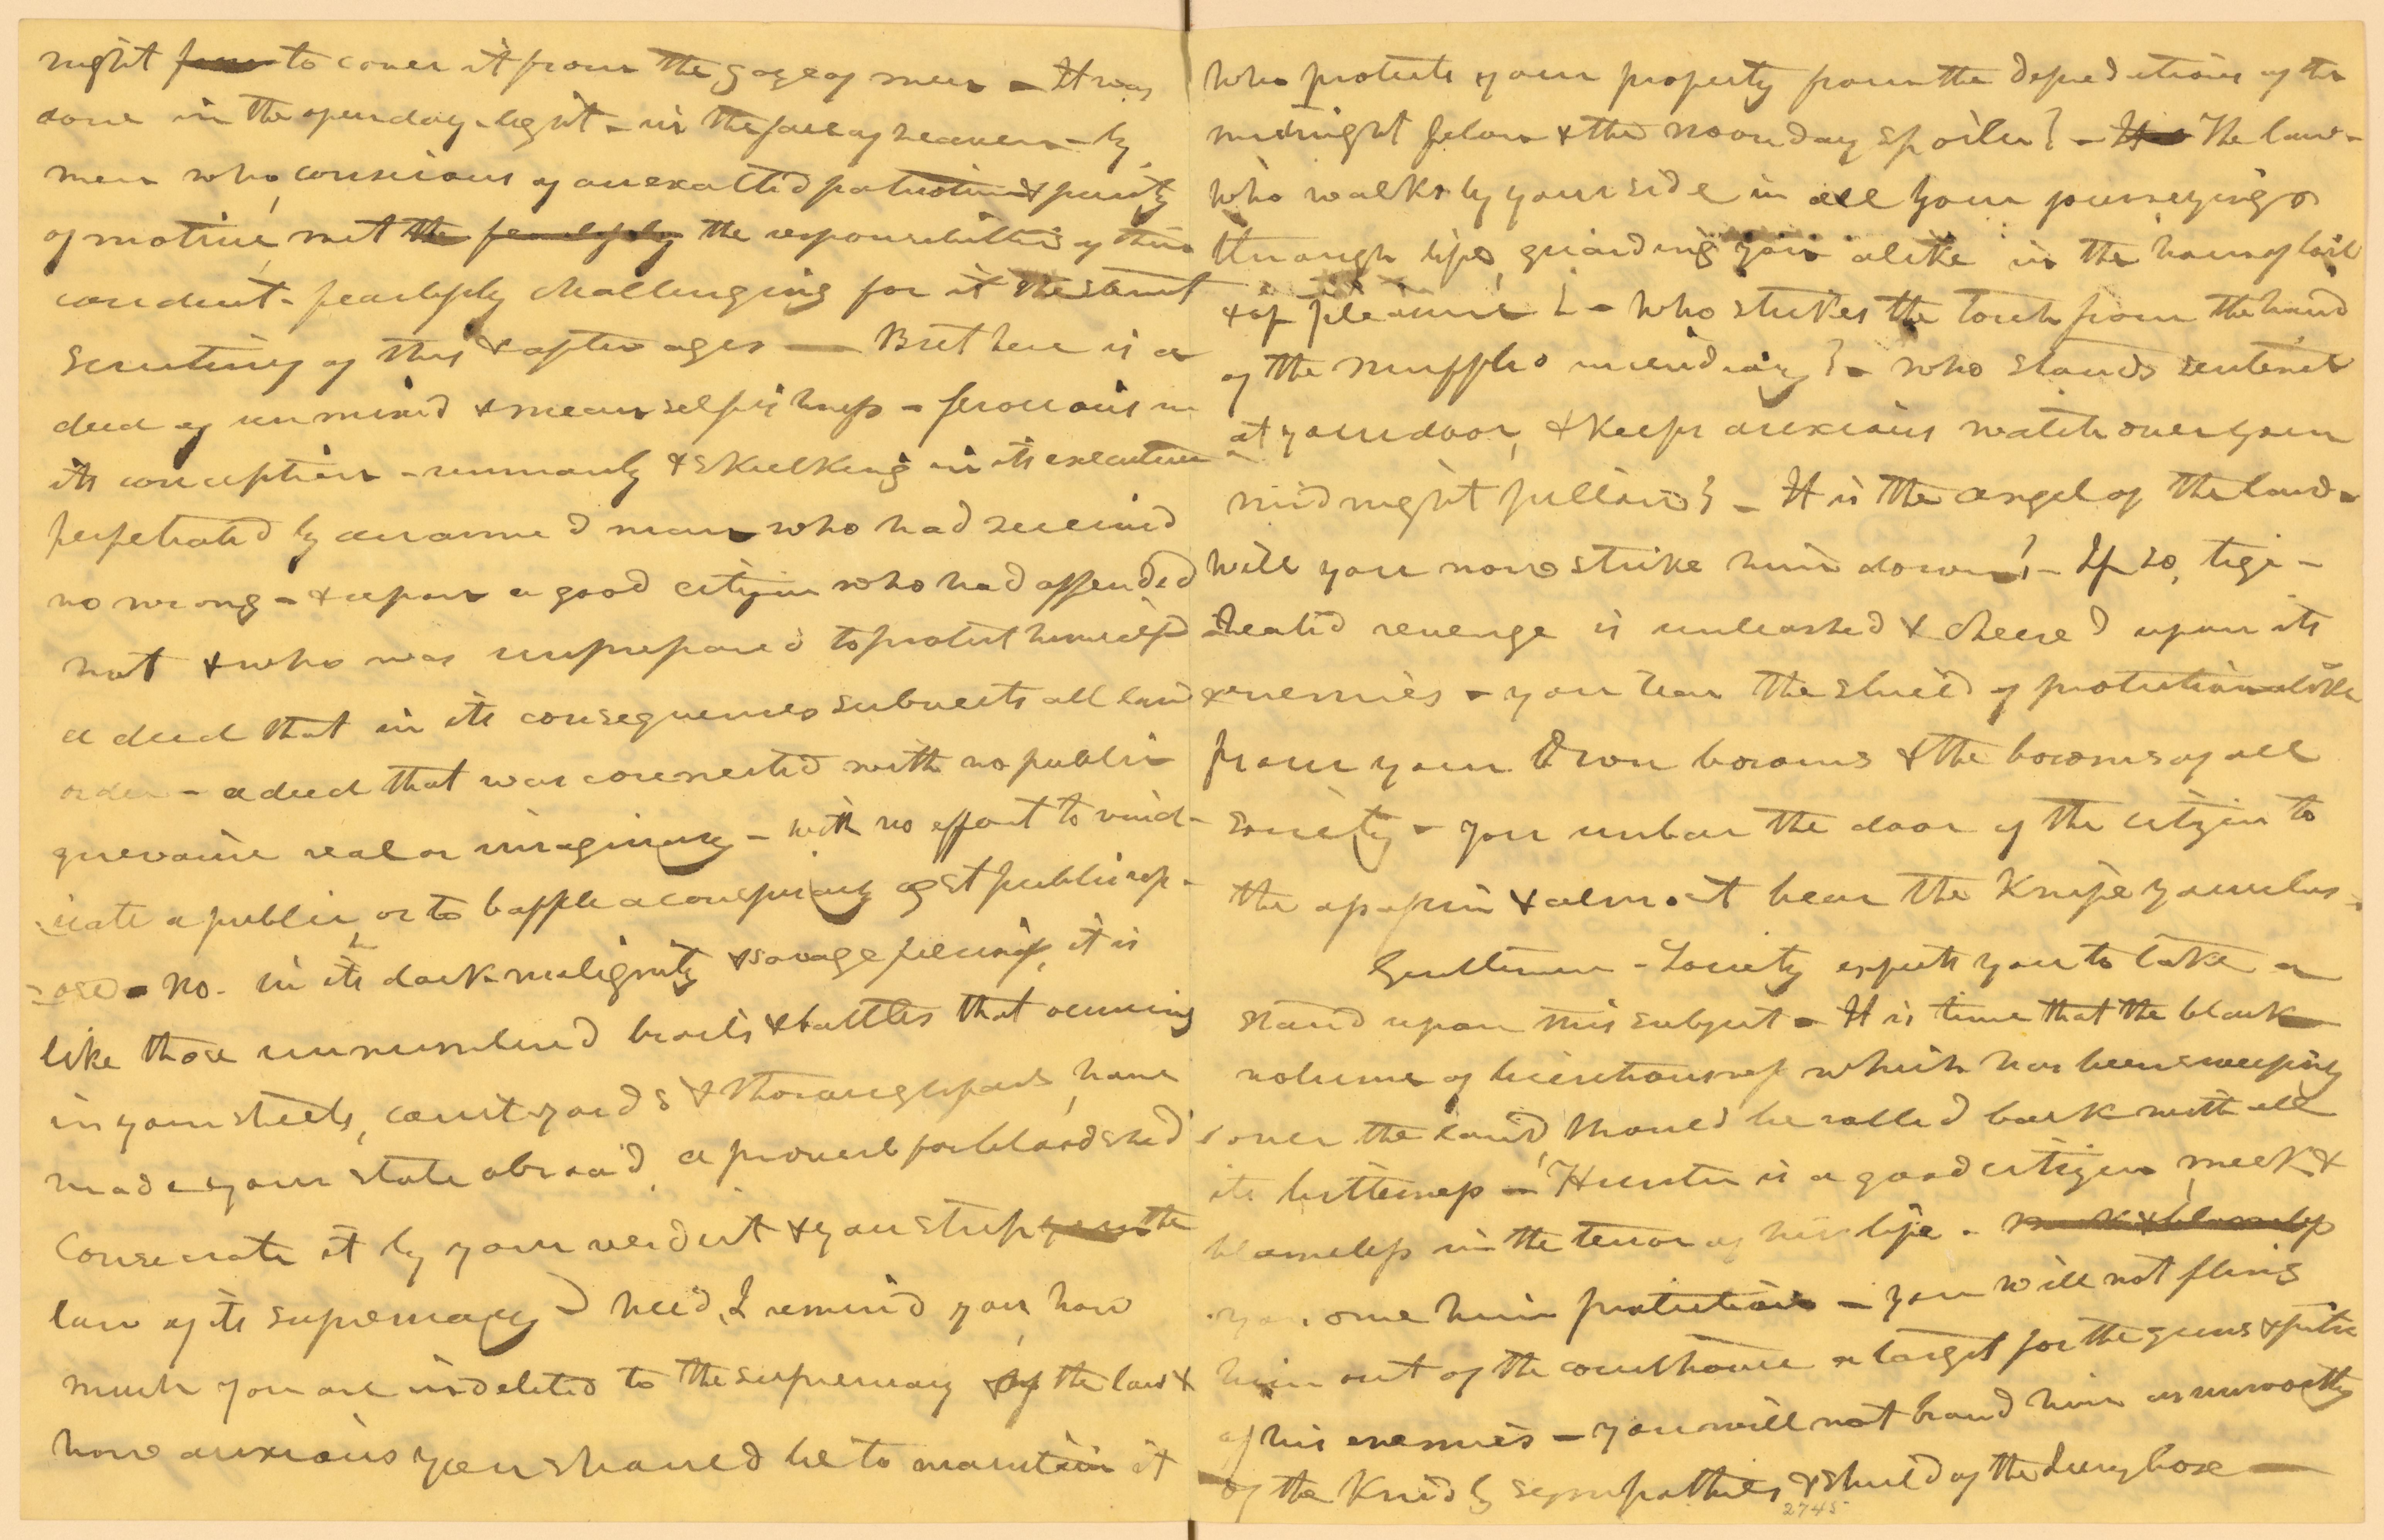 night from to cover it from the gaze of men - It was
done in the open day-light - in the face of heaven - by
men who, conscious of an exalted patriotism & purity
of motive, met the fearlessly the responsibilities of their
conduct - fearlessly challenging for it the strict
scrutiny of this & after ages — But here is a
deed of unmixed & mean selfishness - ferocious in
its conception - unmanly & skulking in its execution
perpetrated by an armed man who had received
no wrong - & upon a good citizen who had offended
not & who was unprepared to protect himself
a deed that in its consequences subverts all law &
order - a deed that was connected with no public
grievance real or imaginary - with no effort to vind-
icate a public, or to baffle a conspiracy agst public rep-
ose - No. in its dark malignity & savage fierceness, it is
like those unnumbered broils & battles that occurring
in your streets, court yards & thoroughfares, have
made your state abroad, a proverb for bloodshed
Consecrate it by your verdict & you strip your the
law of its supremacy - Need I remind you, how
much you are indebted to the supremacy of the law &
how anxious you should be to maintain it
who protects your property from the depredations of the
midnight felon & the noonday spoiler? - It is The law -
Who walks by your side in all your journeyings
through life, guarding you alike in the hour of toil
& of pleasure? - Who strikes the torch from the hand
of the muffled incendiary? - Who stands sentinel
at your door, & keeps anxious watch over your
midnight pillow? - It is the angel of the law -
Will you now strike him down? - If so, tige-
hearted revenge is unleashed & cheered upon its
enemies - you tear the shield of protection alike
from your own bosoms & the bosoms of all
Society - you unbar the door of the citizen to
the assassin & almost bear the Knife
Gentlemen - Society expects you to take a
stand upon this subject - It is time that the black
volume of licentiousness which has been sweeping
over the land, should be rolled back with all
its bitterness - Hunter is a good citizen, meek &
blameless in the tenor of his life - meek & blameless
you owe him protection - you will not fling
him out of the courthouse a target for the guns & pistols
of his enemies - you will not brand him as unworthy
of the Kindly sympathies & shield of the Jury box —
2745